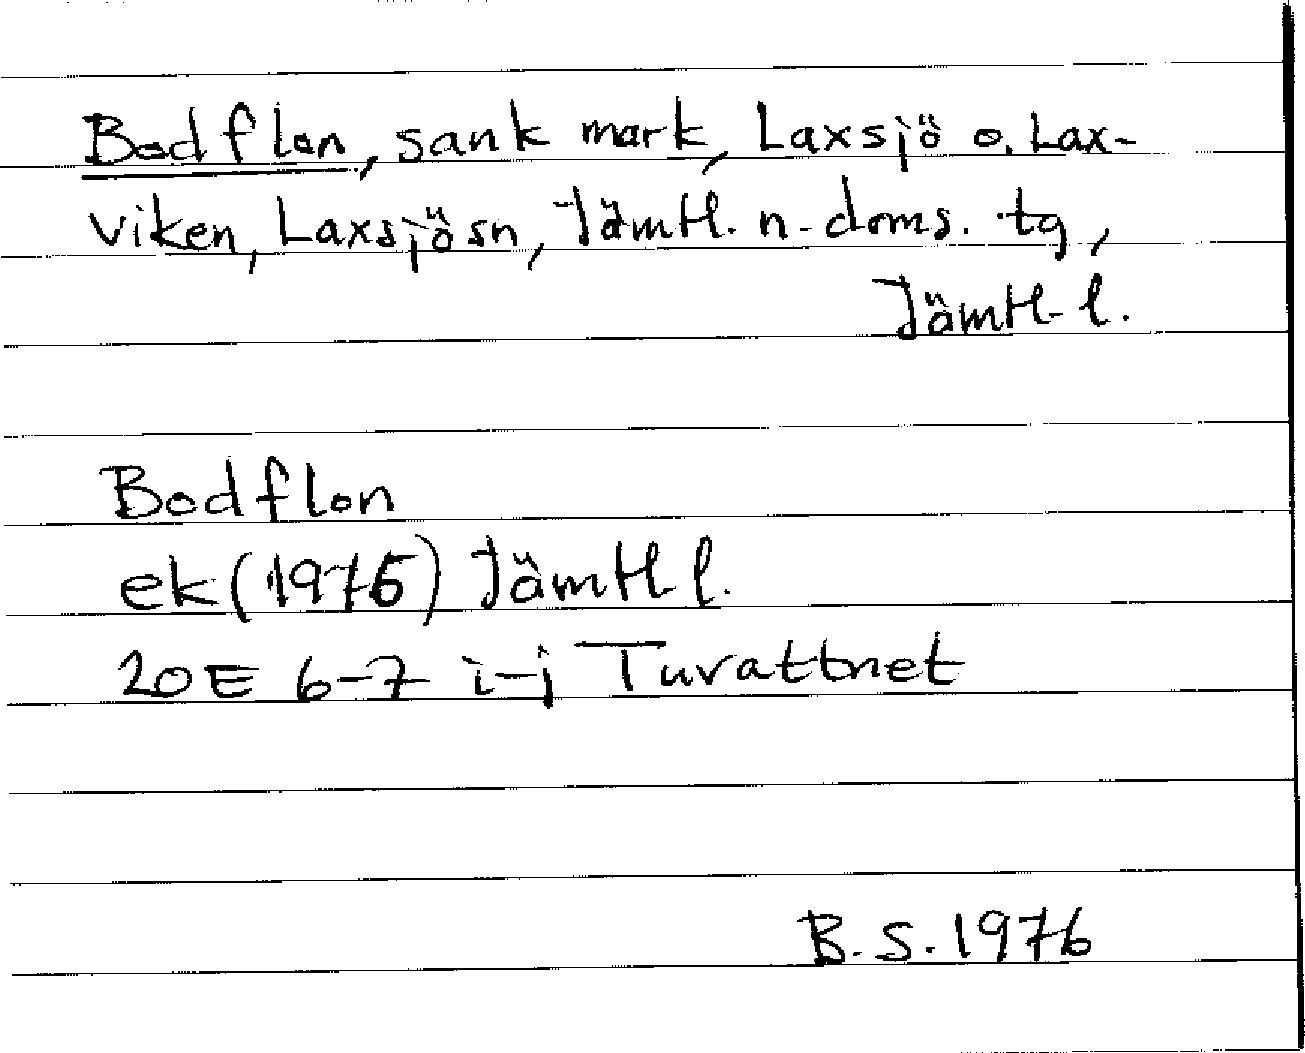 Bodflon, sank mark, Laxsjö o. Lax-
viken, Laxsjösn, Jämtl. n. doms. tg,
Jämtl. l.
Bodflon
ek (1975) Jämtl l.
20E 6-7 i-j Tuvattnet
B.S. 1976